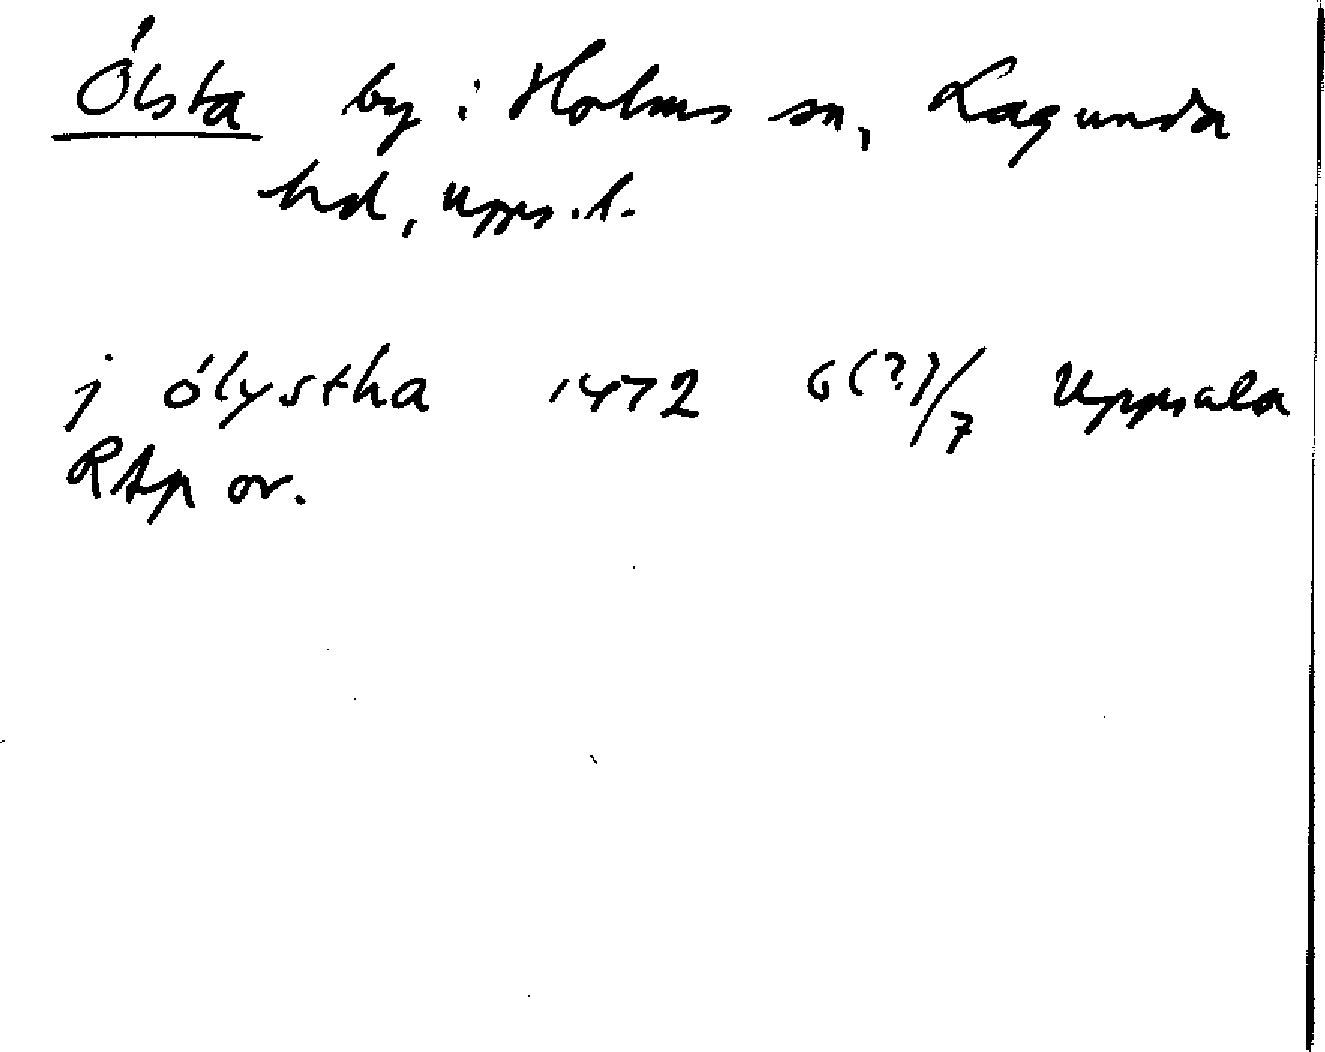 Ólsta by i Holms sn, Lagunda
hd, Upps. l.
j ólystha 1472 6(?)/7 Uppsala
RAp or.